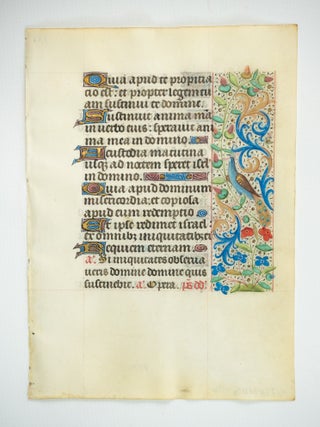 Quia apud te propicia
cio est: et propter legem tu
am sustinui te domine.
Sustinuit anima mea
in verbo eius: speravit ani
ma mea in domino.
A custodia matutina
usque ad noctem speret isrl
in domino.
Quia apud dominum
misericordia: et copiosa
apud eum redemptio
Et ipse redimet israel
ex omnibus iniquitatibus eius
Requiem eternam.
a. Si iniquitates observa
veris domine domine quis
sustinebit. a. Opera. ps dd.